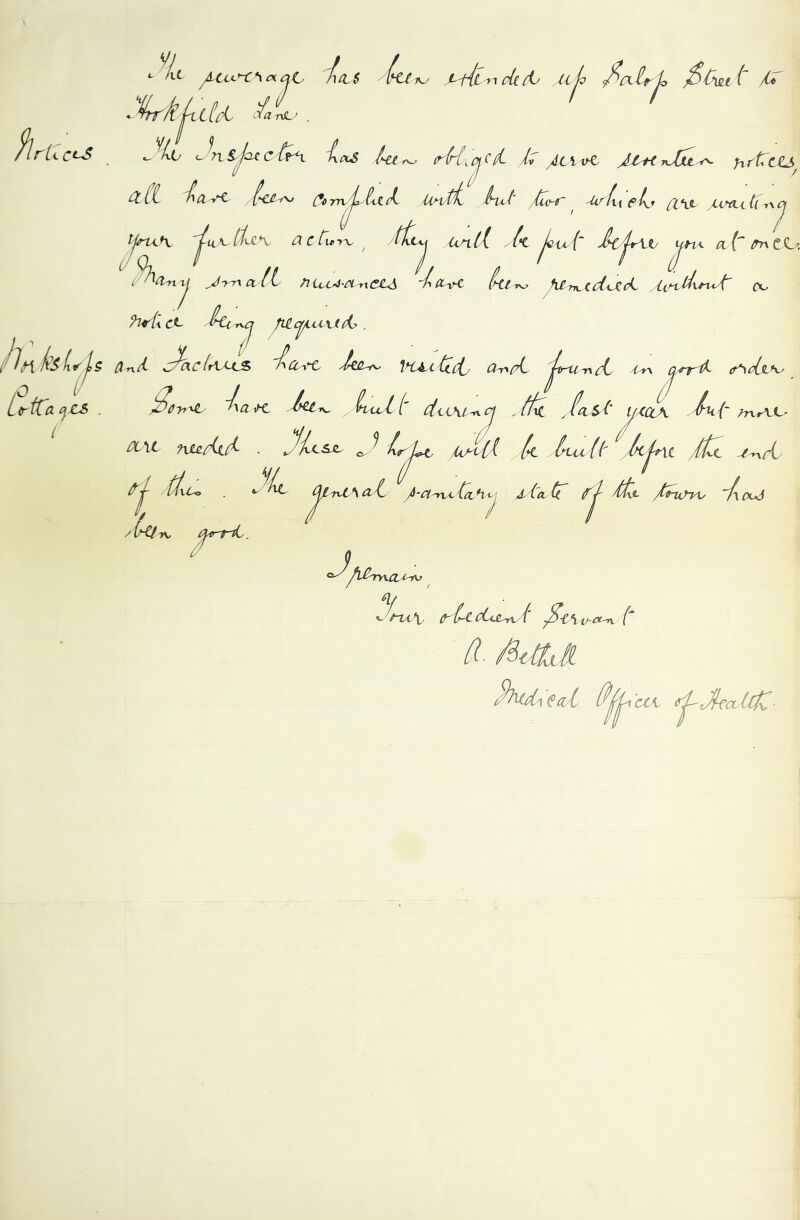 The sewerage has been extended up Salop Street to
Workfield Lane.
Notices. The Inspector has been obliged to serve seventeen notices,
all have been complied with but two, which are waiting
your further action, they will be put before you at once.
Many small nuisances have been remedied without a
notice being required.
Workshops and Factories have been visited and found in good order.
Cottages. Some have been built during the last year but more
are needed. These I hope will be built before the end
of this. The general sanitary state of the town has
been good.
I remain,
Your obedient Servant
A. Bethell
Medical Officer of Health.